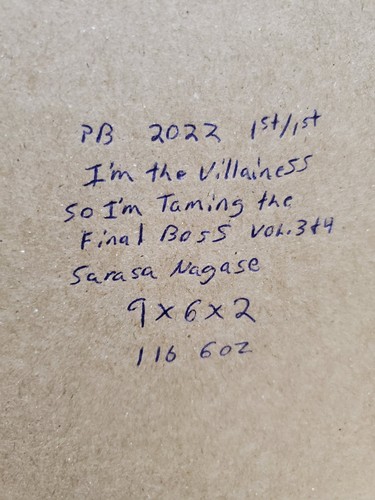 PB 2022 1st/1st
I'm the Villainess
So I'm Taming the
Final Boss Vol. 3+4
Sarasa Nagase
9x6x2
1 lb 6oz